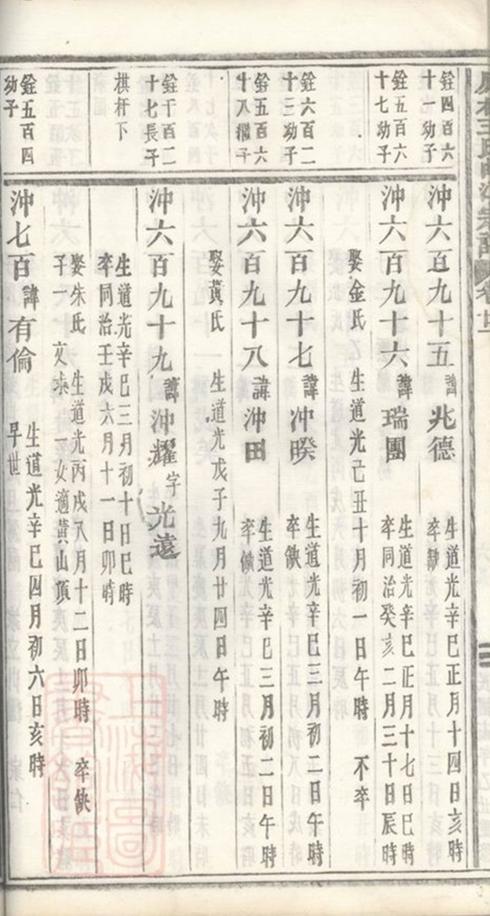 銓四百六
十一幼子
沖六百九十五 諱 兆德
生道光辛巳正月十四日亥時
卒缺
銓五百六
十七幼子
沖六百九十六 諱 瑞團
生道光辛巳正月十七日巳時
卒同治癸亥二月三十日辰時
娶金氏 生道光己丑十月初一日午時 不卒
銓六百二
十三幼子
沖六百九十七 諱 沖暌
生道光辛巳三月初二日午時
卒缺
銓五百六
十八幼子
沖六百九十八 諱 沖田
生道光辛巳三月初二日午時
卒缺
娶黃氏 生道光戊子九月廿四日午時
銓千百二
十七長子
棋杆下
沖六百九十九 諱 沖耀 字 光遠
生道光辛巳三月初十日巳時
卒同治壬戌六月十一日卯時
娶朱氏 生道光丙戌八月十二日卯時 卒缺
子一 文 一女適黃山頂
銓五百四
幼子
沖七百 諱 有倫
生道光辛巳四月初六日亥時
早世